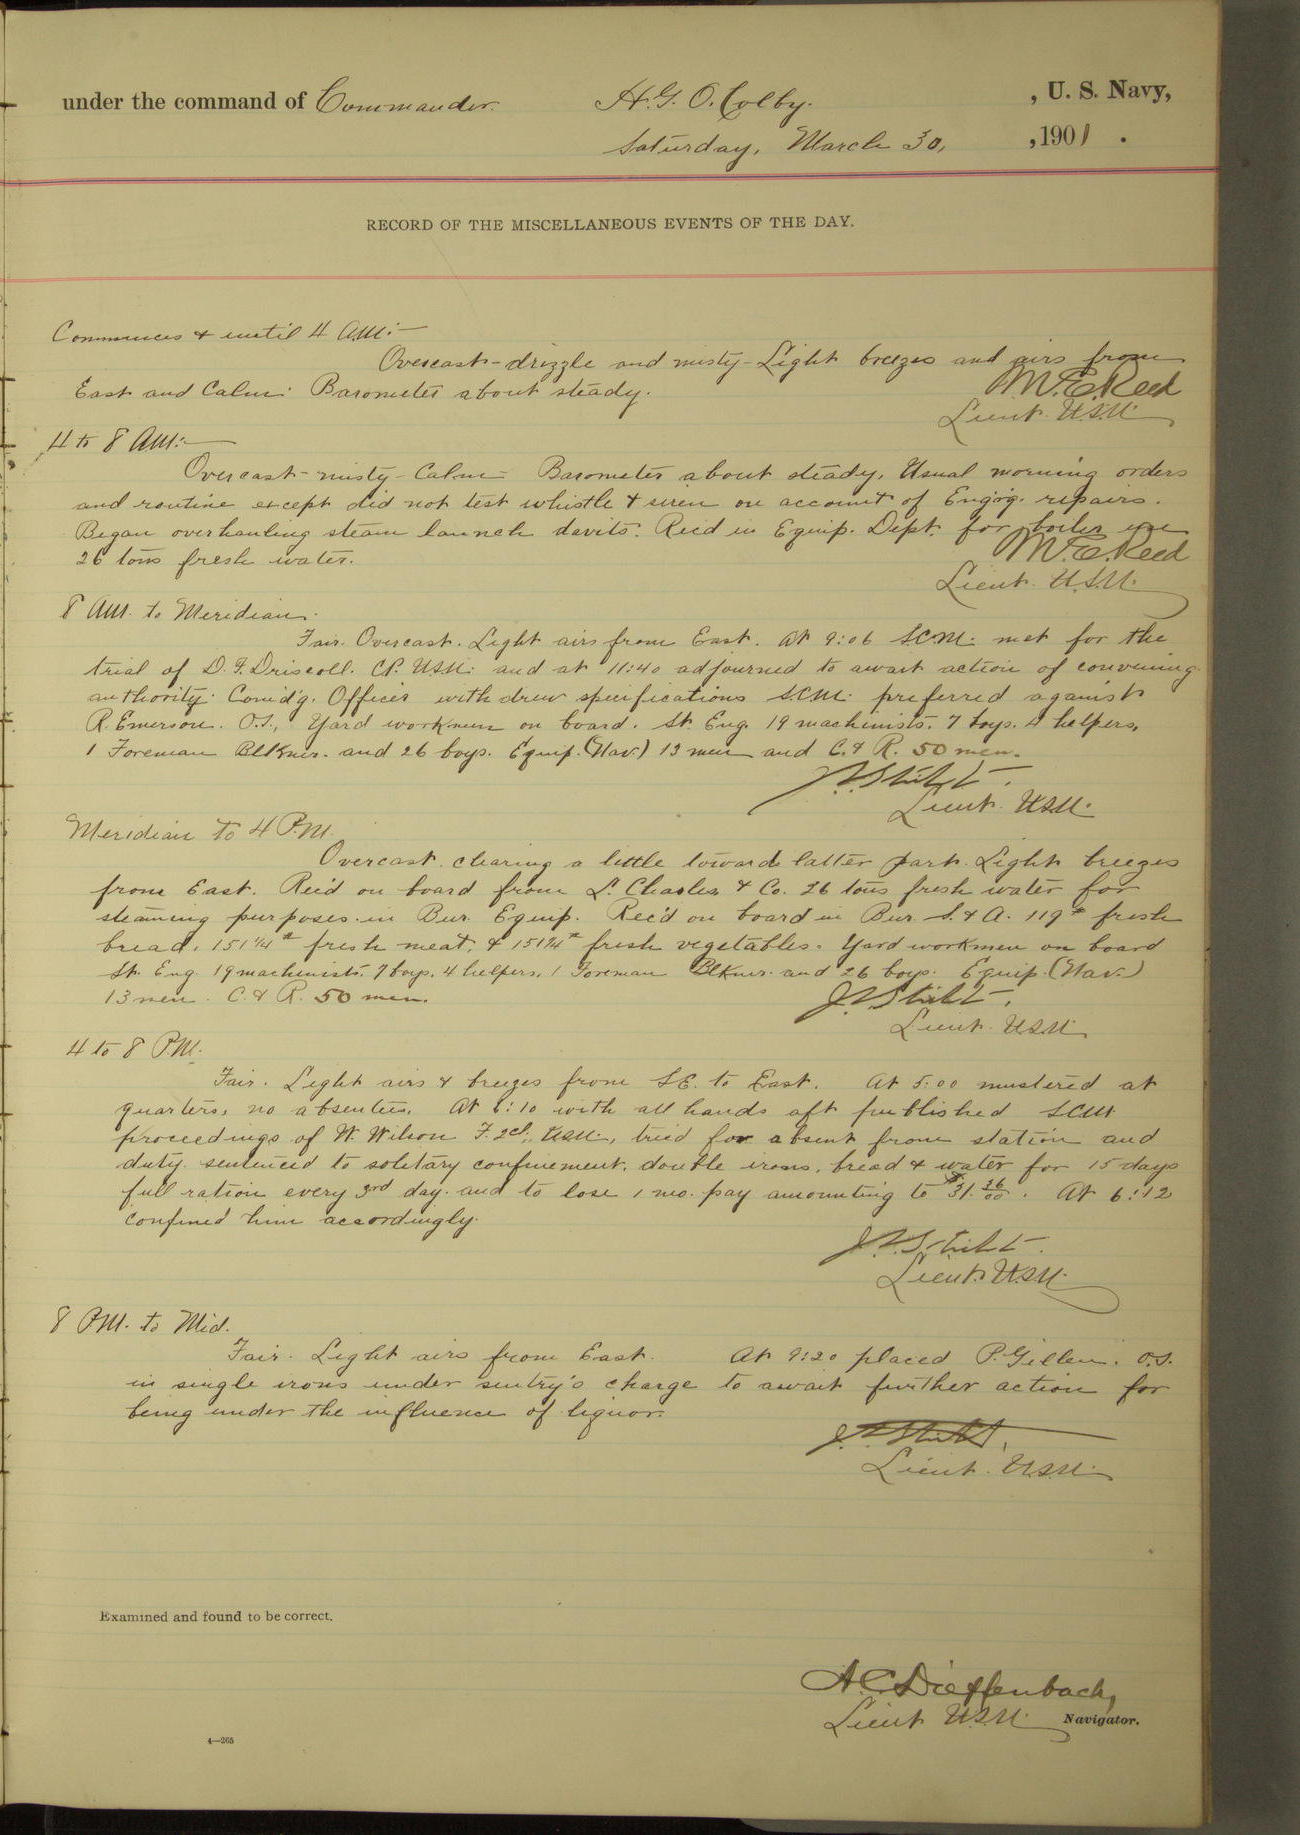 under the command of Commander. H. G. O. Colby. , U. S. Navy,
Saturday, March 30, , 1901 .
RECORD OF THE MISCELLANEOUS EVENTS OF THE DAY.
Commences & until 4 A.M:—
Overcast - drizzle and misty - Light breezes and airs from
East and Calm: Barometer about steady.
M. E. Reed
Lieut. U.S.N.
4 to 8 A.M:—
Overcast - misty - Calm - Barometer about steady. Usual morning orders
and routine except did not test whistle & siren on account of Eng'g. repairs.
Began overhauling steam launch davits. Rec'd in Equip. Dept. for boiler use
26 tons fresh water.
M. E. Reed
Lieut. U.S.N.
8 A.M. to Meridian.
Fair. Overcast. Light airs from East. At 9:06 S.C.M. met for the
trial of D. F. Driscoll. C.P. U.S.N. and at 11:40 adjourned to await action of convening
authority. Comd'g. Officer withdrew specifications S.C.M. preferred against
R. Emerson. O.S., Yard workmen on board. St. Eng. 19 machinists. 7 boys. 4 helpers,
1 Foreman Blkmr. and 26 boys. Equip. (Nav.) 13 men and C. & R. 50 men.
Lieut. U.S.N.
Meridian to 4 P.M.
Overcast. clearing a little towards latter part. Light breezes
from East. Rec'd on board from L. Charles & Co. 26 tons fresh water for
steaming purposes in Bur. Equip. Rec'd on board in Bur. S. & A. 119# fresh
bread, 151 1/4# fresh meat, & 151 1/4# fresh vegetables. Yard workmen on board
St. Eng. 19 machinists, 7 boys, 4 helpers, 1 Foreman Blkmr. and 26 boys. Equip. (Nav.)
13 men. C. & R. 50 men.
Lieut. U.S.N.
4 to 8 P.M.
Fair. Light airs & breezes from S.E. to East. At 5:00 mustered at
quarters, no absentees. At 6:10 with all hands aft published S.C.M.
proceedings of W. Wilson F. 2cl. U.S.N., tried for absent from station and
duty. sentenced to solitary confinement, double irons, bread & water for 15 days
full ration every 3rd day. and to lose 1 mo. pay amounting to $31. 36/00. At 6:12
confined him accordingly.
Lieut. U.S.N.
8 P.M. to Mid.
Fair. Light airs from East. At 9:20 placed P. Gillen. O.S.
in single irons under sentry's charge to await further action for
being under the influence of liquor.
Lieut. U.S.N.
Examined and found to be correct.
A. C. Dieffenbach,
Lieut U.S.N. Navigator.
4—265